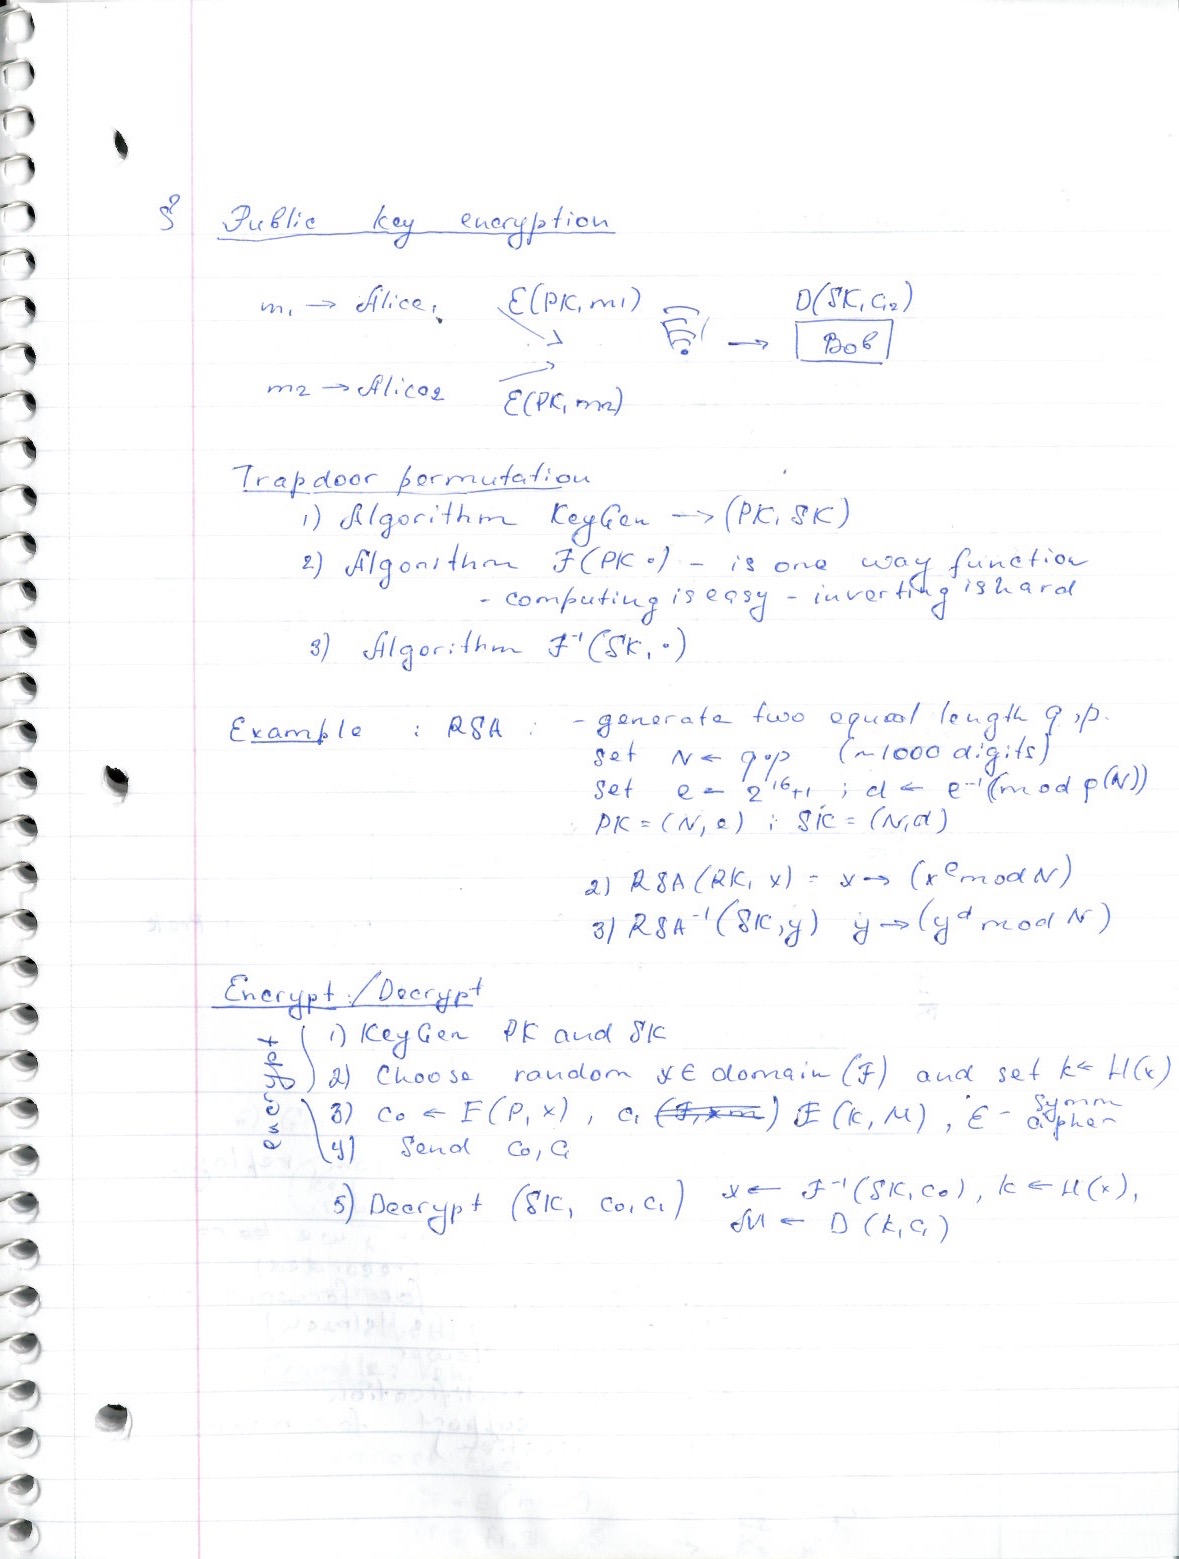 § Public key encryption
m1 → Alice1 E(PK, m1) D(SK, c1,2)
→ Bob
m2 → Alice2 E(PK, m2)
Trapdoor permutation
1) Algorithm KeyGen → (PK, SK)
2) Algorithm F(PK ·) - is one way function
- computing is easy - inverting is hard
3) Algorithm F⁻¹(SK, ·)
Example : RSA : - generate two equal length q, p.
set N ← q·p (~1000 digits)
set e = 2¹⁶+1 ; d ← e⁻¹ (mod φ(N))
PK = (N, e) ; SK = (N, d)
2) RSA(PK, x) = x → (xᵉ mod N)
3) RSA⁻¹(SK, y) y → (yᵈ mod N)
Encrypt/Decrypt
encrypt
1) KeyGen PK and SK
2) Choose random x ∈ domain (F) and set k ← H(x)
3) c0 ← F(P, x), c1 E(k, M), E - symm cipher
4) Send c0, c1
5) Decrypt (SK, c0, c1) x ← F⁻¹(SK, c0), k ← H(x),
M ← D(k, c1)